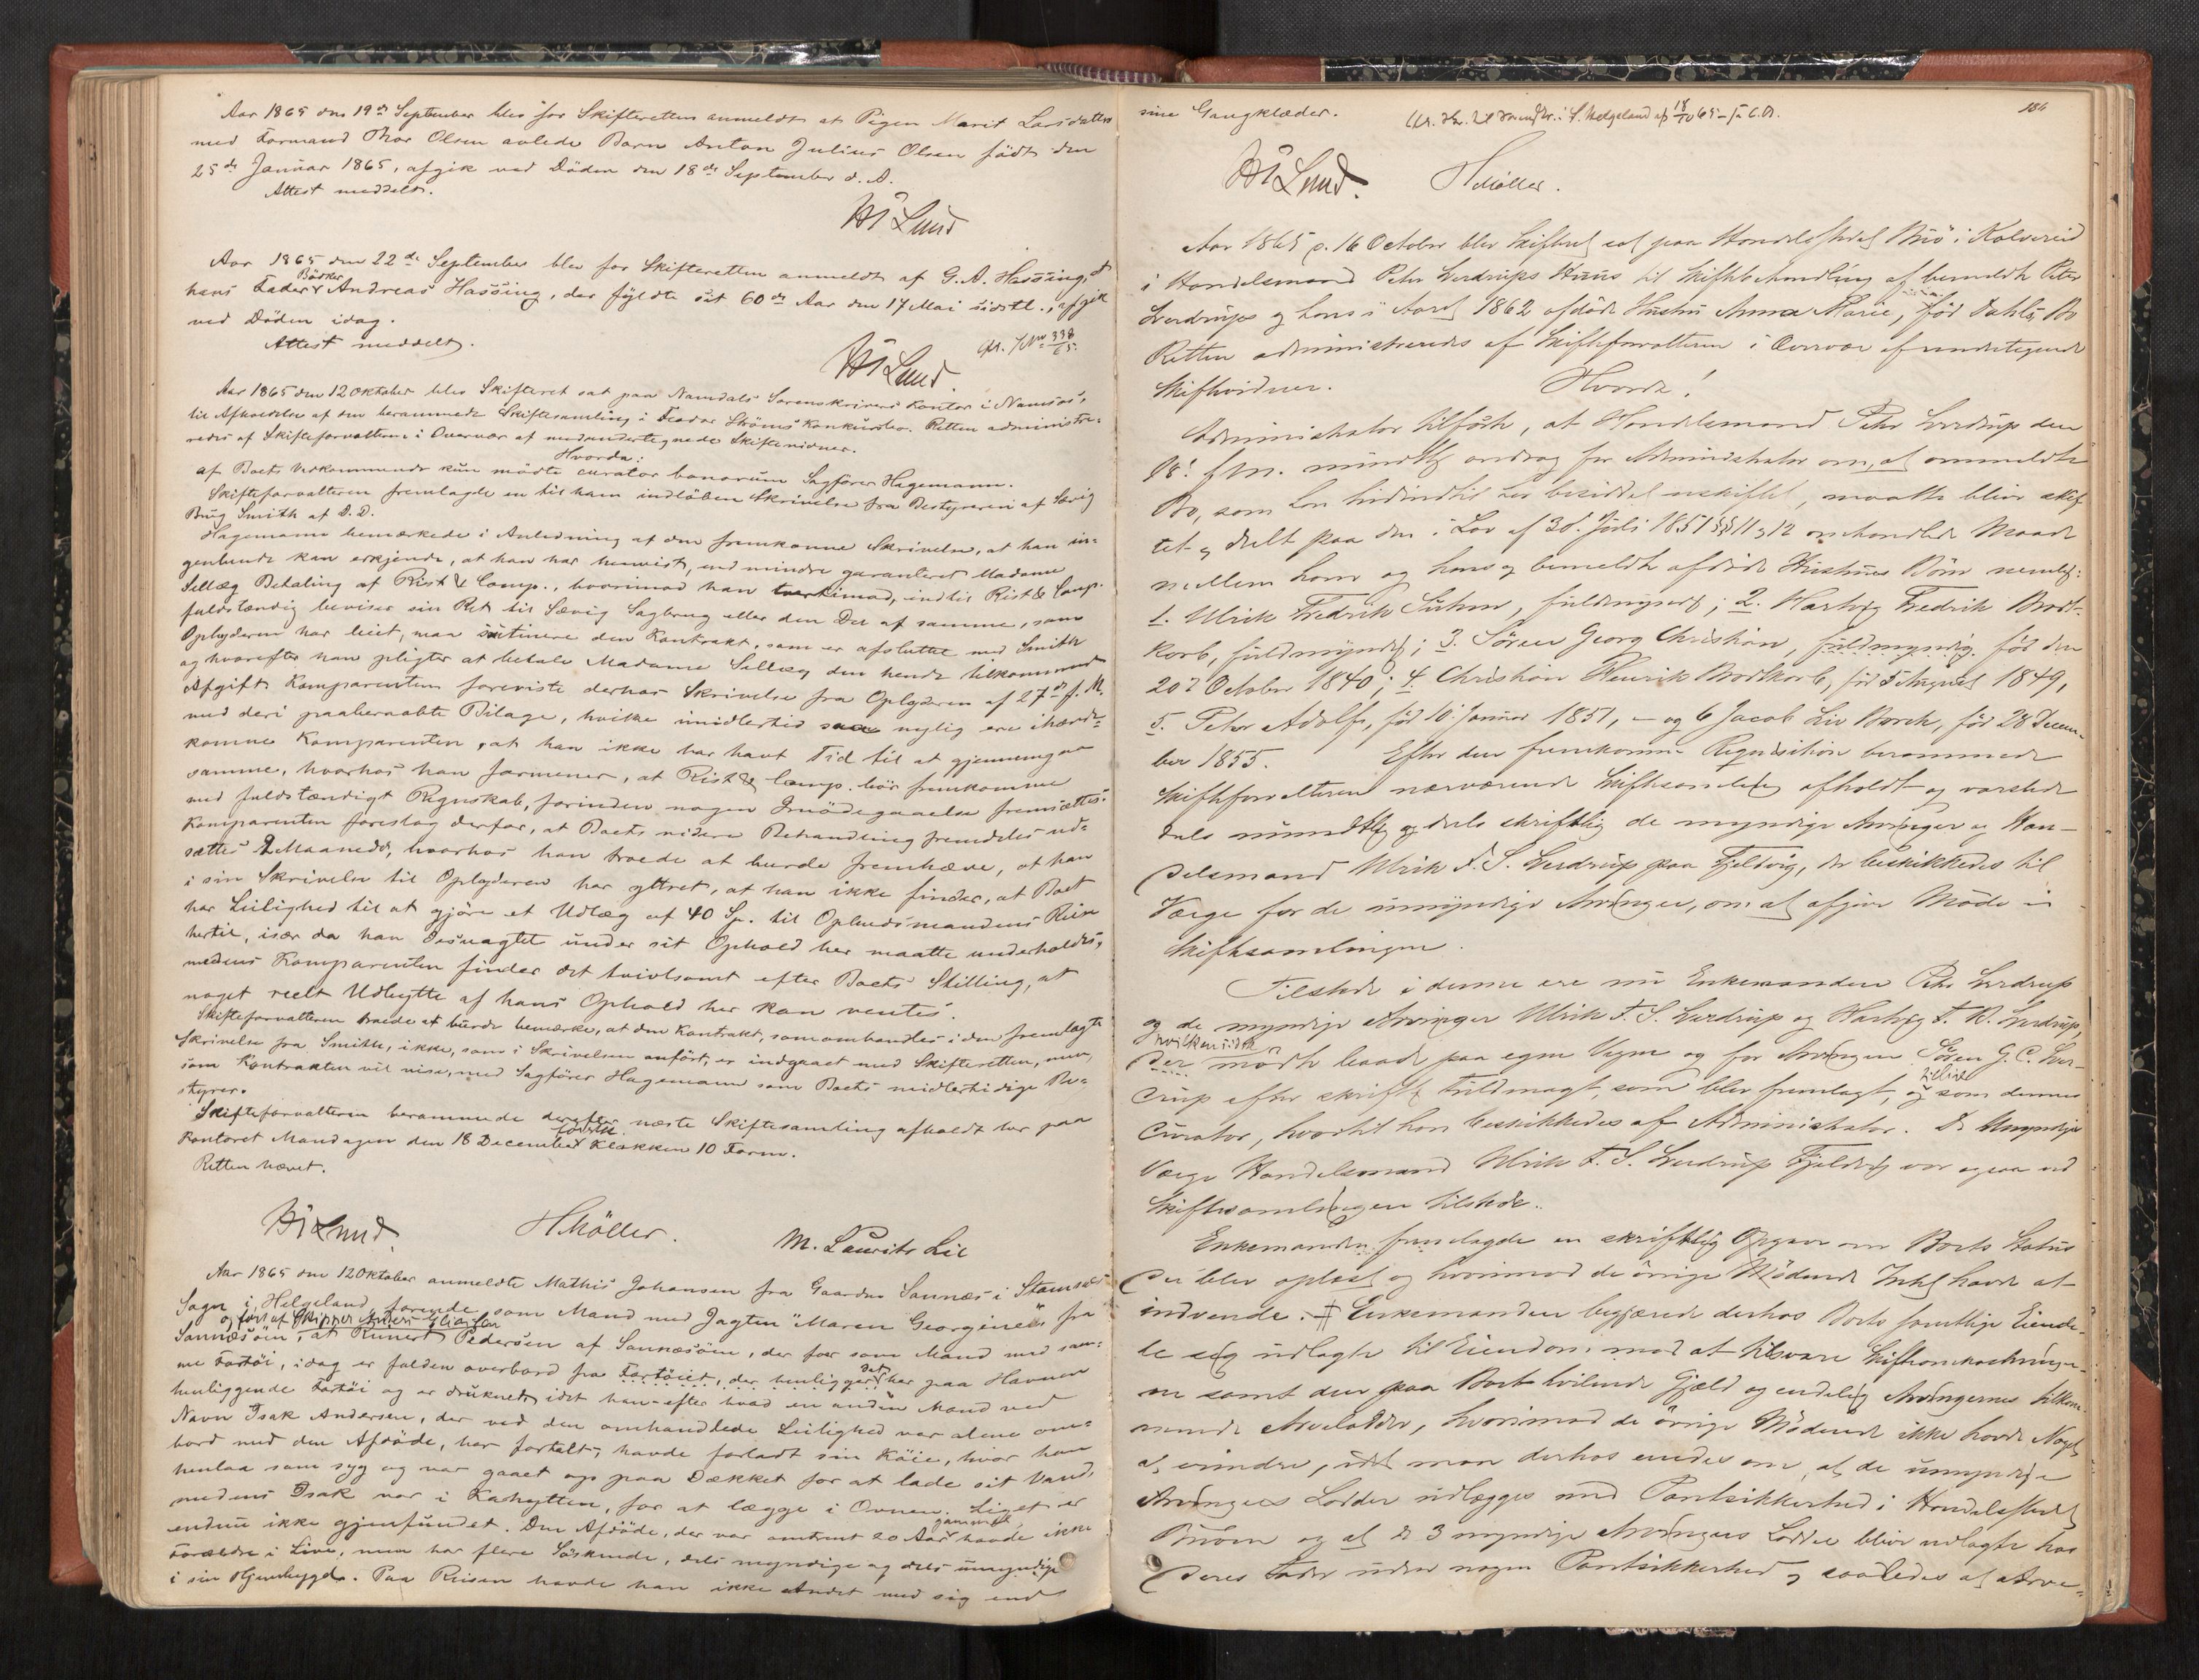 Aar 1865 den 19de September blev for Skifteretten anmeldt at Pigen Marit Larsdatters
med Formand Thor Olsen avlede Barn Anton Julius Olsen født den
25de Januar 1865, afgik ved Döden den 18de September d. A.
Attest meddelt.
Lund
Aar 1865 den 22de September blev for Skifteretten anmeldt af G. A. Hassing, at
hans Fader Bödker Andreas Hassing, der fyldte sit 60de Aar den 17 Mai sidstl., afgik
ved Döden idag.
Attest meddelt.
Lund.
Aar 1865 den 12 Oktober blev Skifteret sat paa Namdals Sorenskriveri Kontor i Namsos,
til Afholdelse af den berammede Skiftesamling i Konkursbo. Retten administre-
redes af Skifteforvalteren i Overvær af medundertegnede Skiftevidner.
Hvorda:
af Boets Vedkommende kun mödte curator bonorum Sagförer Hagemann.
Skifteforvalteren fremlagde en til ham indlöben Skrivelse fra Bestyreren af Sævig
Brug Smith af D. D.
Hagemann bemærkede i Anledning af den fremkomne Skrivelse, at han in-
genlunde kan erkjende, at han har henvist, end mindre garanteret Madame
Sellæg Betaling af Rist & Comp., hvorimod han indtil Rist & Comp.
fuldstændig beviser sin Ret til Sævig Sagbrug eller den Del af samme, som
Opbyderen har leiet, maa sutinere den Kontrakt, som er afsluttet med Smith
og hvorefter han pligter at betale Madame Sellæg den hende tilkommende
Afgift. Komparenten foreviste derhos Skrivelse fra Opbyderen af 27de f. M.
med deri paaberaabte Bilage, hvilke imidlertid saa nylig ere ihænde-
komne Komparenten, at han ikke har havt Tid til at gjennemgaa
samme, hvorhos han formener, at Rist & Comp. bör fremkomme
med fuldstændigt Regnskab, forinden nogen Imödegaaelse fremsættes.
Komparenten foreslog derfor, at Boets videre Behandling fremdeles ud-
sættes 2 Maaneder, hvorhos han troede at burde fremhæve, at han
i sin Skrivelse til Opbyderen har yttret, at han ikke finder, at Boet
har Leilighed til at gjöre et Udlæg af 40 Sp. til Opbudsmandens Reise
hertil, især da han desuagtet under sit Ophold her maatte underholdes,
medens Komparenten finder det tvivlsomt efter Boets Stilling, at
noget reelt Udbytte af hans Ophold her kan ventes.
Skifteforvalteren troede at burde bemærke, at den Kontrakt, som omhandles i den fremlagte
Skrivelse fra Smith, ikke, som i Skrivelsen anfört, er indgaaet med Skifteretten, men,
som Kontrakten vil vise, med Sagförer Hagemann som Boets midlertidige Be-
styrer.
Skifteforvalteren berammede derefter næste Skiftesamling afholdt her paa
Kontoret Mandagen den 18 December förstk. Klokken 10 Form.
Retten hævet.
Lund. HMöller. M. Laurits Lie
Aar 1865 den 12 Oktober anmeldte Mathis Johansen fra Gaarden Sannæs i Stamnes
Sogn i Helgeland, farende som Mand med Jagten "Maren Georgine" fra
Sannæsöen, og fört af Skipper at Pedersen af Sannæsöen, der foer som Mand med sam-
me Fartöi, idag er falden overbord fra Fartöiet, der henligger det her paa Havnen
henliggende Fartöi og er druknet, idet han – efter hvad en anden Mand ved
Navn Isak Andersen, der ved den omhandlede Leilighed var alene om-
bord med den Afdöde, har fortalt, havde forladt sin Köie, hvor han
henlaa som syg og var gaaet op paa Dækket for at lade sit Vand,
medens Isak var i Kahytten, for at lægge i Ovnen. Liget er
endnu ikke gjenfundet. Den Afdöde, der var omtrent 20 Aar gammel, havde ikke
Forældre i Live, men har flere Söskende, dels myndige og dels umyndige
i sin Hjembygd. Paa Reisen havde han ikke Andet med sig end
186
sine Gangklæder.
Lund. HMöller.
Aar 1865 d. 16 October blev Skifteret sat paa Handelsstedet Buö i Kolvereid
i Handelsmand Peter Sverdrups Huus til Skiftebehandling af bemeldte Peter
Sverdrups og hans i Aaret 1862 afdöde Hustru Anna Marie, född Dahls, Bo
Retten administreredes af Skifteforvalteren i Overvær af undertegnede
Skiftevidner. Hvorda!
Administrator tilförte, at Handelsmand Peter Sverdrup den
18. f. M. mundtlig androg for Administrator om, at ommeldte
Bo, som han hidindtil har besiddet uskiftet, maatte blive skif-
tet og deelt paa den i Lov af 30. Juli 1851 §§ 11 og 12 omhandlede Maade
mellem ham og hans og bemeldte afdöde Hustrues Börn nemlig:
1. Ulrik Fredrik Suhm, fuldmyndig; 2. Hartvig Fredrik Brodt-
korb, fuldmyndig; 3. Sören Georg Christian, fuldmyndig. föd den
20de October 1840; 4 Christian Henrik Brodtkorb, föd 5 August 1849,
5. Peter Adolf, föd 10 Januar 1851, – og 6 Jacob Liv Borch, föd 28 Decem-
ber 1855. Efter den fremkomne Reqvisition berammede
Skifteforvalteren nærværende Skiftesamling afholdt og varslede
dels mundtlig og dels skriftlig de myndige Arvinger og Han-
delsmand Ulrik F. S. Sverdrup paa Fjeldvig, der beskikkedes til
Værge for de umyndige Arvinger, om at afgive Möde i
Skiftesamlingen.
Tilstede i denne ere nu Enkemanden Peter Sverdrup
og de myndige Arvinger Ulrik F. S. Sverdrup og Hartvig F. B. Sverdrup,
hvilken sidste der mödte baade paa egne Vegne og for Arvingen Sören G. C. Sver-
drup efter skriftl. Fuldmagt, som blev fremlagt, og tillige som dennes
Curator, hvortil han beskikkedes af Administrator. De Umyndiges
Værge Handelsmand Ulrik F. S. Sverdrup Fjeldvig var ogsaa ved
Skiftesamlingen tilstede.
Enkemanden fremlagde en skriftlig Opgave om Boets Status
der blev oplæst og hvorimod de övrige Mödende Intet havde at
indvende. Enkemanden begjærede derhos Boets samtlige Eiende-
le sig udlagte til Eiendom mod at tilsvare Skifteomkostninger-
ne samt den paa Boet hvilende Gjæld og endelig Arvingernes tilkom-
mende Arvelodder, hvorimod de övrige Mödende ikke havde Noget
at erindre, idet man derhos enedes om, at de umyndige
Arvingers Lodder udlægges med Pantsikkerhed i Handelsstedet
Buöen og at de 3 myndige Arvingers Lodder blive udlagte hos
deres Fader uden nogen Pantsikkerhed og saaledes at Arve-